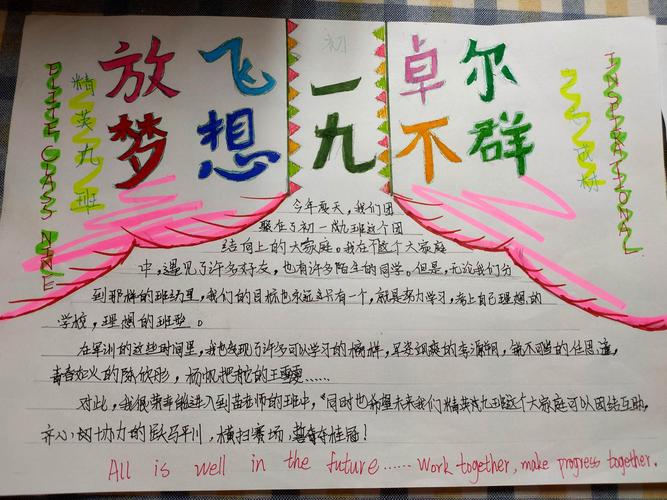 放飞 初一 卓尔
梦想 九 不群
精英九班
ELITE CLASS NINE
INSPIRATIONAL
今年夏天,我们团
聚在了初一(九)班这个团
结向上的大家庭。我在这个大家庭
中,遇见了许多好友,也有许多陌生的同学。但是,无论我们分
到那样的班级里,我们的目标也永远只有一个,就是努力学习,考上自己理想的
学校,理想的班型。
在军训的这些时间里,我也发现了许多可以学习的榜样,
青春如火的陈欣彤,杨帆把舵的王雯……
对此,我很荣幸能进入到苗老师的班中,同时也希望未来我们精英九班这个大家庭可以团结互助,
齐心协力的跃马平川,横扫赛场,勇夺桂冠!
All is well in the future...... Work together, make progress together.